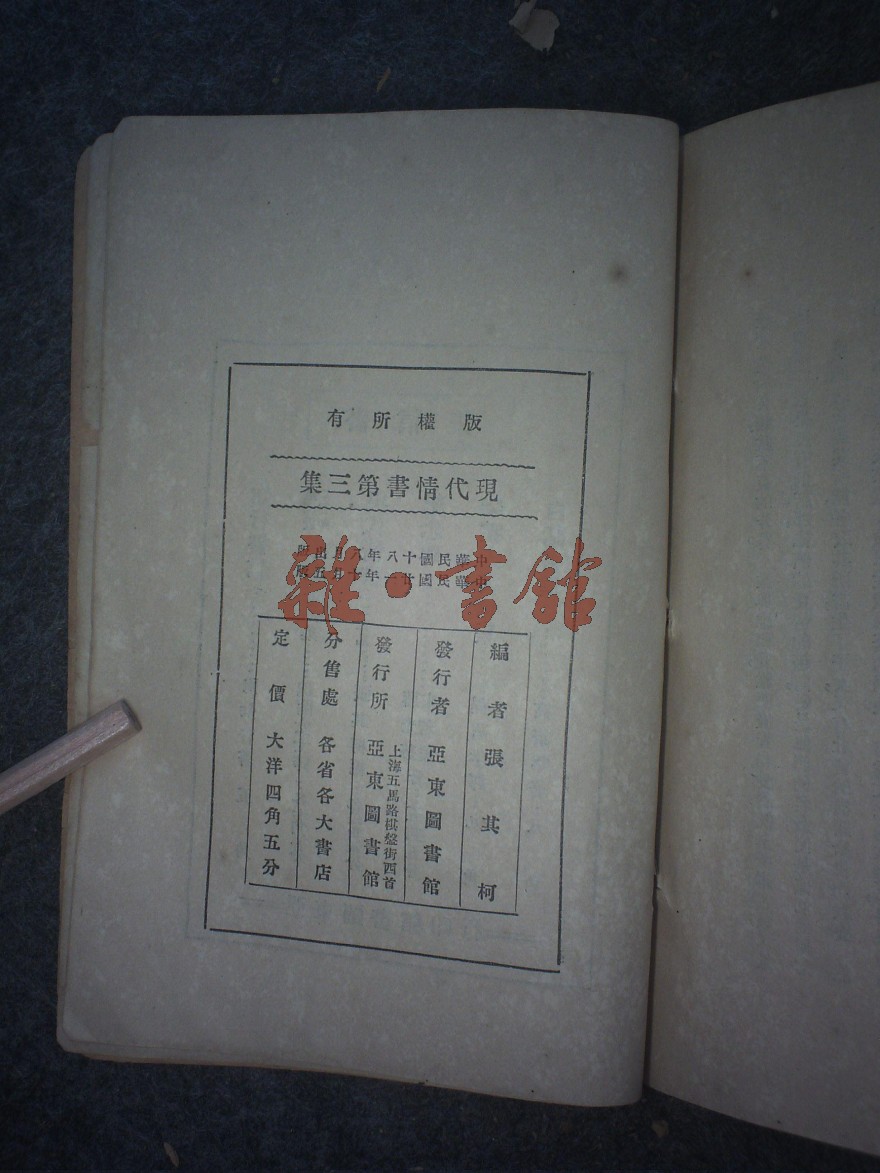 版權所有
現代情書第三集
中華民國十八年八月出版
中華民國廿一年十月五版
雜·書館
編者 張其柯
發行者 亞東圖書館
發行所 上海五馬路棋盤街西首
亞東圖書館
分售處 各省各大書店
定價 大洋四角五分